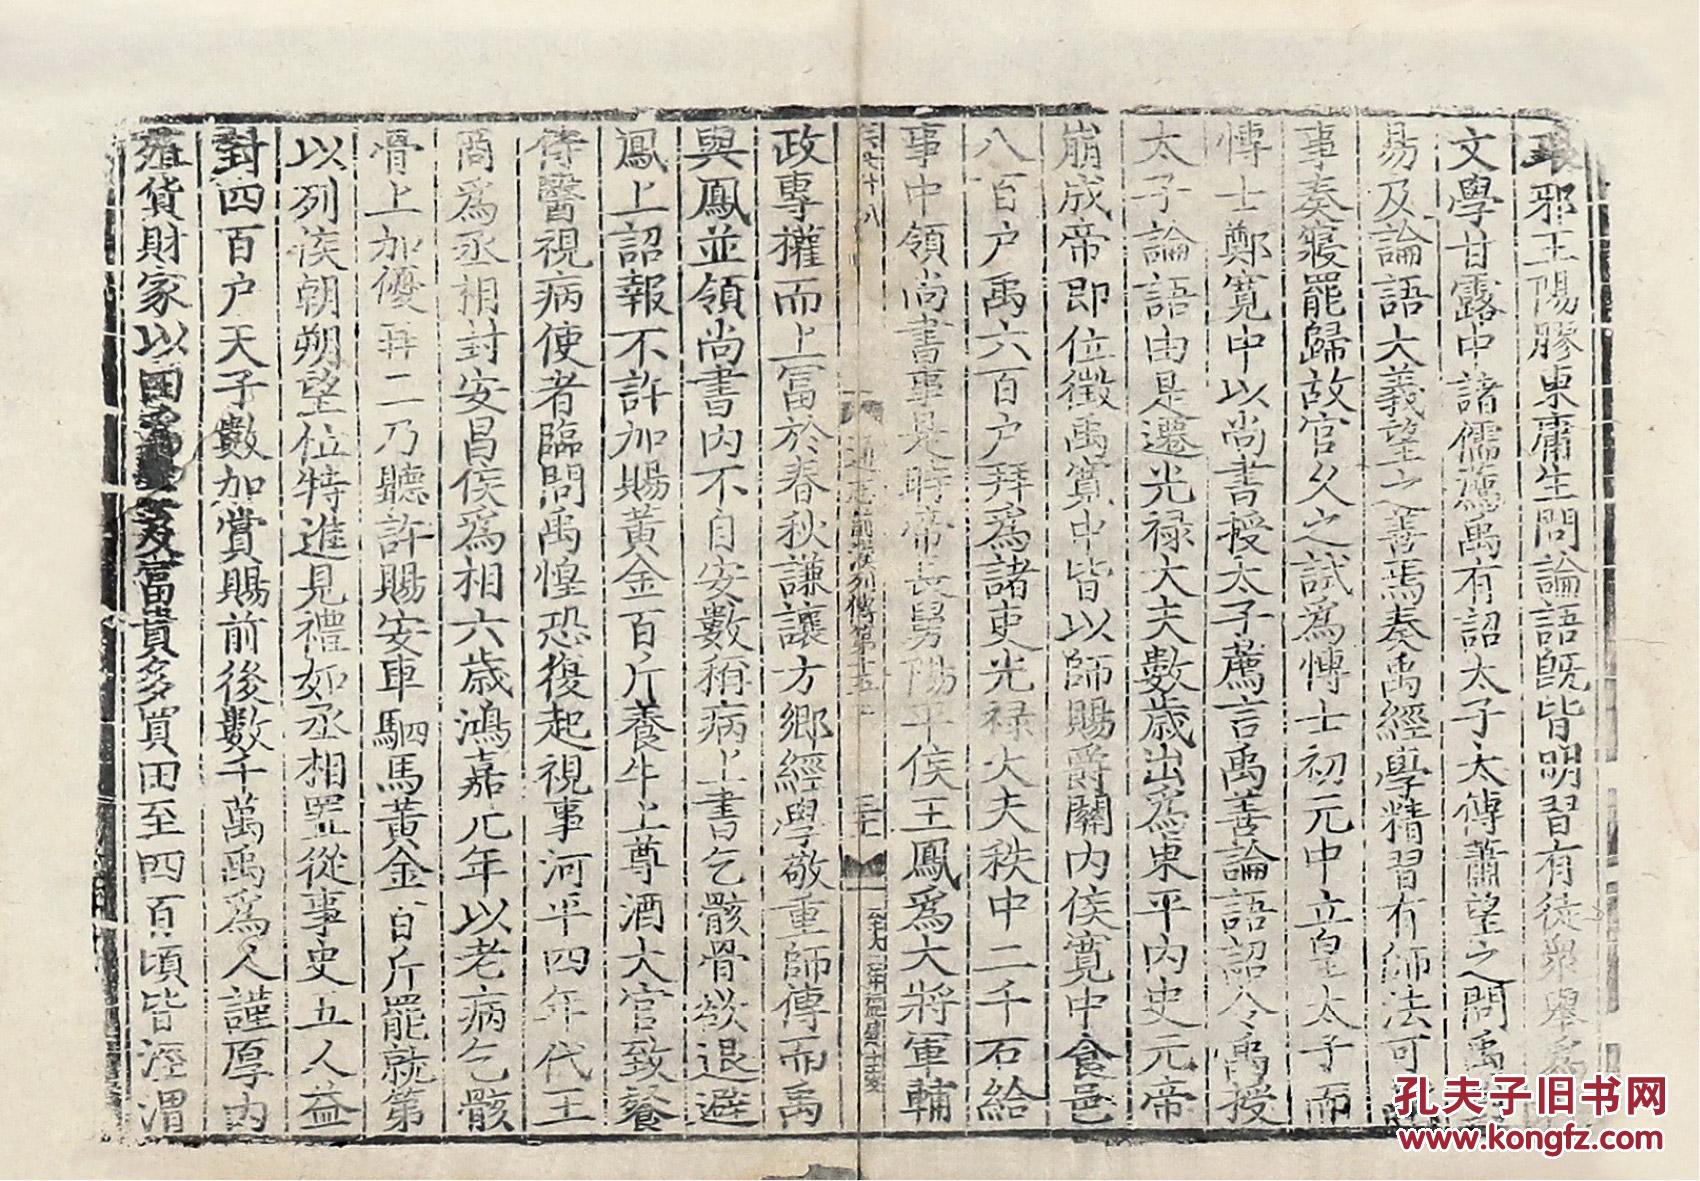 琅邪王陽膠東庸生問論語旣皆明習有徒衆舉爲
文學甘露中諸儒薦禹有詔太子太傅蕭望之問禹
易及論語大義望之善焉奏禹經學精習有師法可
事奏寢罷歸故官久之試爲博士初元中立皇太子而
博士鄭寬中以尚書授太子薦言禹善論語詔令禹授
太子論語由是遷光禄大夫數歲出爲東平内史元帝
崩成帝即位徵禹寬中皆以師賜爵關内侯寬中食邑
八百户禹六百户拜爲諸吏光禄大夫秩中二千石給
事中領尚書事是時帝長舅陽平侯王鳳爲大將軍輔
通志前漢列傳第十五
政專權而上富於春秋謙讓方鄉經學敬重師傅而禹
與鳳並領尚書内不自安數稱病上書乞骸骨欲退避
鳳上詔報不許加賜黄金百斤養牛上尊酒大官致餐
侍醫視病使者臨問禹惶恐復起視事河平四年代王
商爲丞相封安昌侯爲相六歲鴻嘉元年以老病乞骸
骨上加優再三乃聽許賜安車駟馬黄金百斤罷就第
以列侯朝朔望位特進見禮如丞相置從事史五人益
封四百户天子數加賞賜前後數千萬禹爲人謹厚内
殖貨財家以田爲業及富貴多買田至四百頃皆涇渭
孔夫子旧书网
www.kongfz.com